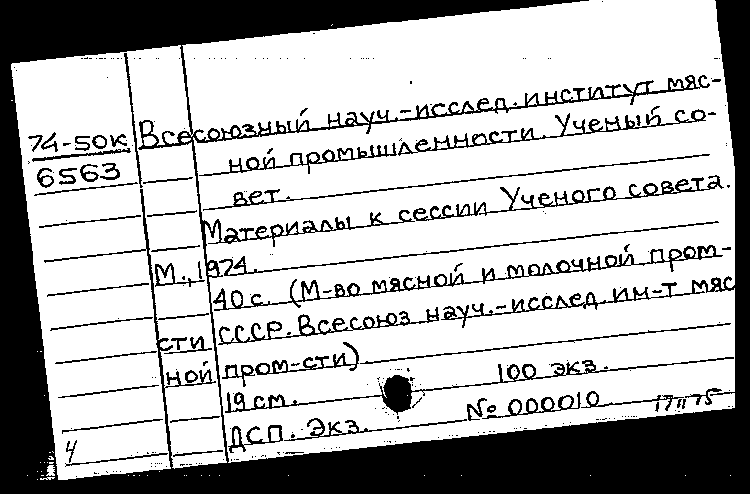 74-50К Всесоюзный науч.-исслед. институт мяс-
6563 ной промышленности. Ученый со-
вет.
Материалы к сессии Ученого совета.
М., 1974.
40 с. (М-во мясной и молочной пром-
сти СССР. Всесоюз науч.-исслед. ин-т мяс
ной пром-сти)
19 см. 100 экз.
ДСП. Экз. № 000010 17 II 75
4